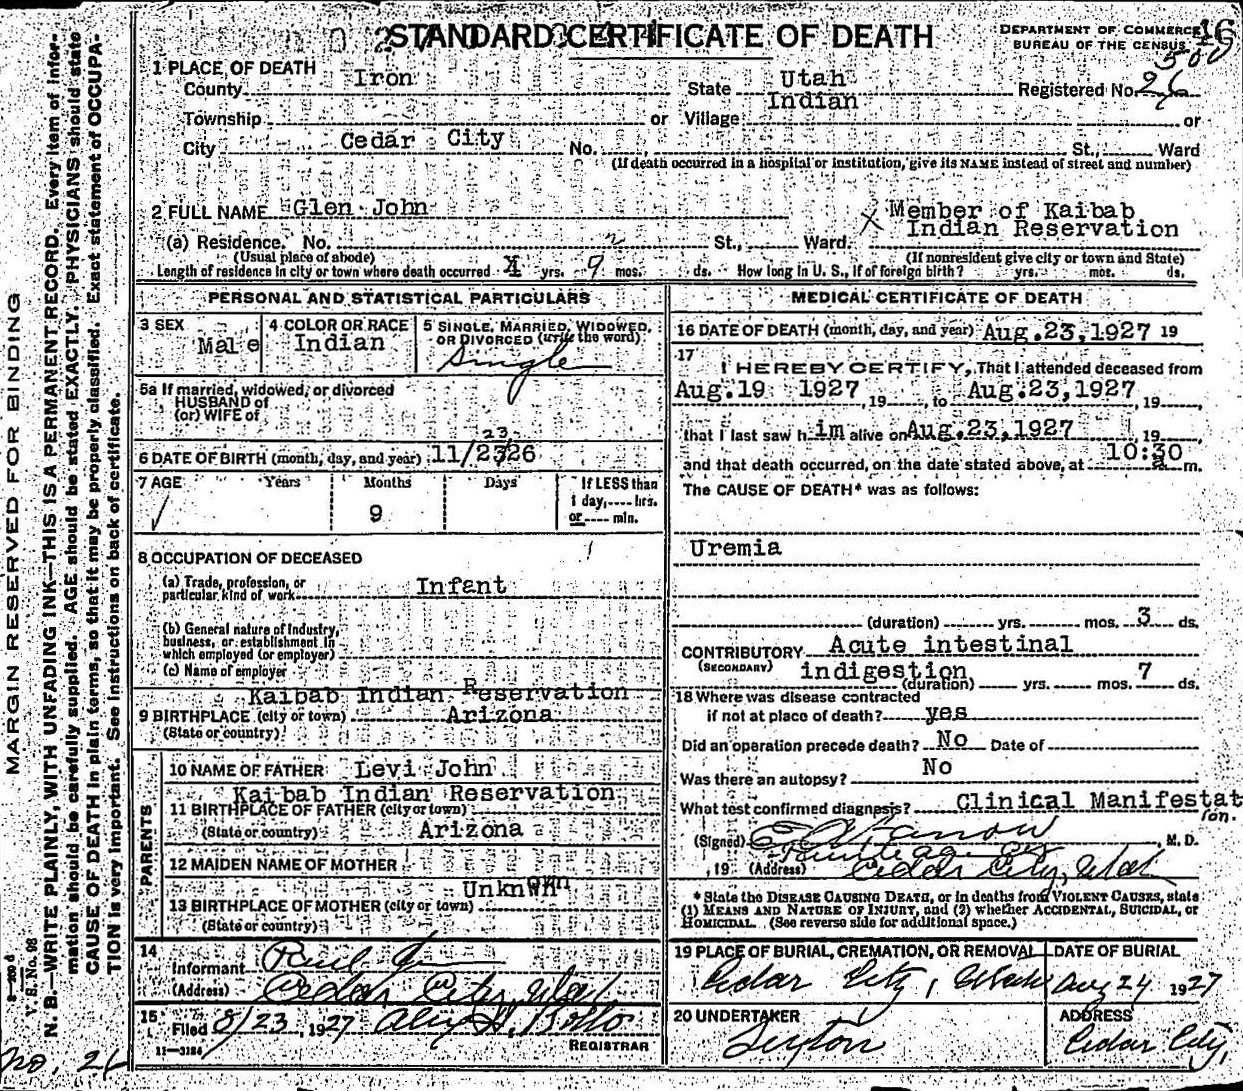 STANDARD CERTIFICATE OF DEATH
DEPARTMENT OF COMMERCE
BUREAU OF THE CENSUS
16
500
1 PLACE OF DEATH
County Iron State Utah Registered No. 26
Indian
Township or Village or
City Cedar City No. St., Ward
(If death occurred in a hospital or institution, give its NAME instead of street and number)
2 FULL NAME Glen John
X Member of Kaibab
(a) Residence. No. St., Ward. Indian Reservation
(Usual place of abode) (If nonresident give city or town and State)
Length of residence in city or town where death occurred yrs. 9 mos. ds. How long in U. S., if of foreign birth? yrs. mos. ds.
PERSONAL AND STATISTICAL PARTICULARS
3 SEX Male
4 COLOR OR RACE Indian
5 SINGLE, MARRIED, WIDOWED, OR DIVORCED (write the word) Single
5a If married, widowed, or divorced
HUSBAND of
(or) WIFE of
23
6 DATE OF BIRTH (month, day, and year) 11/2326
7 AGE Years Months Days If LESS than
1 day, ---- hrs.
9 or ---- min.
8 OCCUPATION OF DECEASED
(a) Trade, profession, or
particular kind of work Infant
(b) General nature of industry,
business, or establishment in
which employed (or employer)
(c) Name of employer
Kaibab Indian Reservation
9 BIRTHPLACE (city or town) Arizona
(State or country)
PARENTS
10 NAME OF FATHER Levi John
Kaibab Indian Reservation
11 BIRTHPLACE OF FATHER (city or town)
(State or country) Arizona
12 MAIDEN NAME OF MOTHER
Unknown
13 BIRTHPLACE OF MOTHER (city or town)
(State or country)
14
Informant
(Address) Cedar City, Utah
15
Filed 8/23, 1927
REGISTRAR
11-3184
MEDICAL CERTIFICATE OF DEATH
16 DATE OF DEATH (month, day, and year) Aug.23,1927 19
17
I HEREBY CERTIFY, That I attended deceased from
Aug.19 1927, 19, to Aug.23,1927, 19,
that I last saw him alive on Aug.23,1927, 19,
10:30
and that death occurred, on the date stated above, at a m.
The CAUSE OF DEATH* was as follows:
Uremia
(duration) yrs. mos. 3 ds.
CONTRIBUTORY Acute intestinal
(SECONDARY) indigestion
(duration) yrs. mos. 7 ds.
18 Where was disease contracted
if not at place of death? yes
Did an operation precede death? No Date of
Was there an autopsy? No
What test confirmed diagnosis? Clinical Manifestat
ion.
(Signed) , M. D.
, 19 (Address) Cedar City, Utah
* State the DISEASE CAUSING DEATH, or in deaths from VIOLENT CAUSES, state
(1) MEANS AND NATURE OF INJURY, and (2) whether ACCIDENTAL, SUICIDAL, or
HOMICIDAL. (See reverse side for additional space.)
19 PLACE OF BURIAL, CREMATION, OR REMOVAL DATE OF BURIAL
Cedar City, Utah Aug 24 1927
20 UNDERTAKER ADDRESS
Cedar City,
MARGIN RESERVED FOR BINDING
N. B.—WRITE PLAINLY, WITH UNFADING INK—THIS IS A PERMANENT RECORD. Every item of infor-
mation should be carefully supplied. AGE should be stated EXACTLY. PHYSICIANS should state
CAUSE OF DEATH in plain terms, so that it may be properly classified. Exact statement of OCCUPA-
TION is very important. See instructions on back of certificate.
V. S. No. 98
No. 26